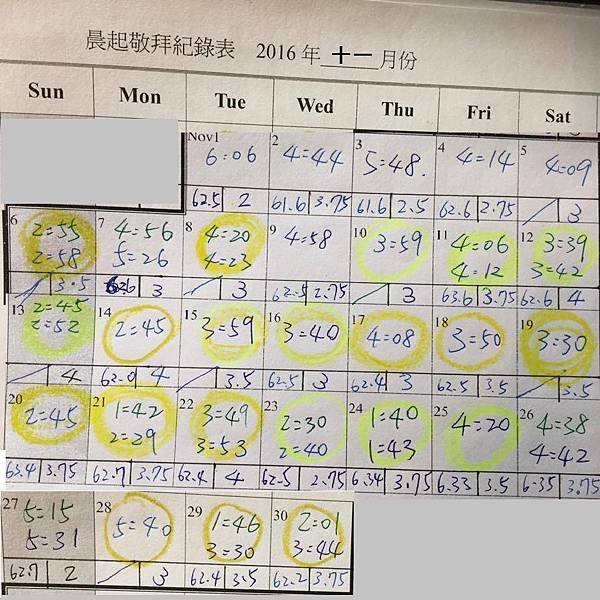 晨起敬拜紀錄表 2016年 十一 月份
Sun Mon Tue Wed Thu Fri Sat
Nov1 2 3 4 5
6:06 4=44 5=48. 4=14 4=09
62.5 2 61.6 3.75 61.6 2.5 62.6 2.75 / 3
6 7 8 9 10 11 12
2=55 4=56 4=20 4=58 3=59 4=06 3=39
2=58 5=26 4=23 4=12 3=42
/ 3.5 62.6 3 / 3 62.5 2.75 / 3 63.6 3.75 62.6 4
13 14 15 16 17 18 19
2=45 2=45 3=59 3=40 4=08 3=50 3=30
2=52
/ 4 62.0 4 / 3.5 62.5 3 62.4 3 62.5 3.5 / 3.5
20 21 22 23 24 25 26
2=45 1=42 3=49 2=30 1=40 4=20 4=38
2=29 3=53 2=40 1=43 4=42
63.4 3.75 62.7 3.75 62.4 4 62.5 2.75 6.34 3.75 6.33 3.5 6.35 3.75
27 28 29 30
5=15 5=40 1=46 2=01
5=31 3=30 3=44
62.7 2 / 3 62.4 3.5 62.2 3.75